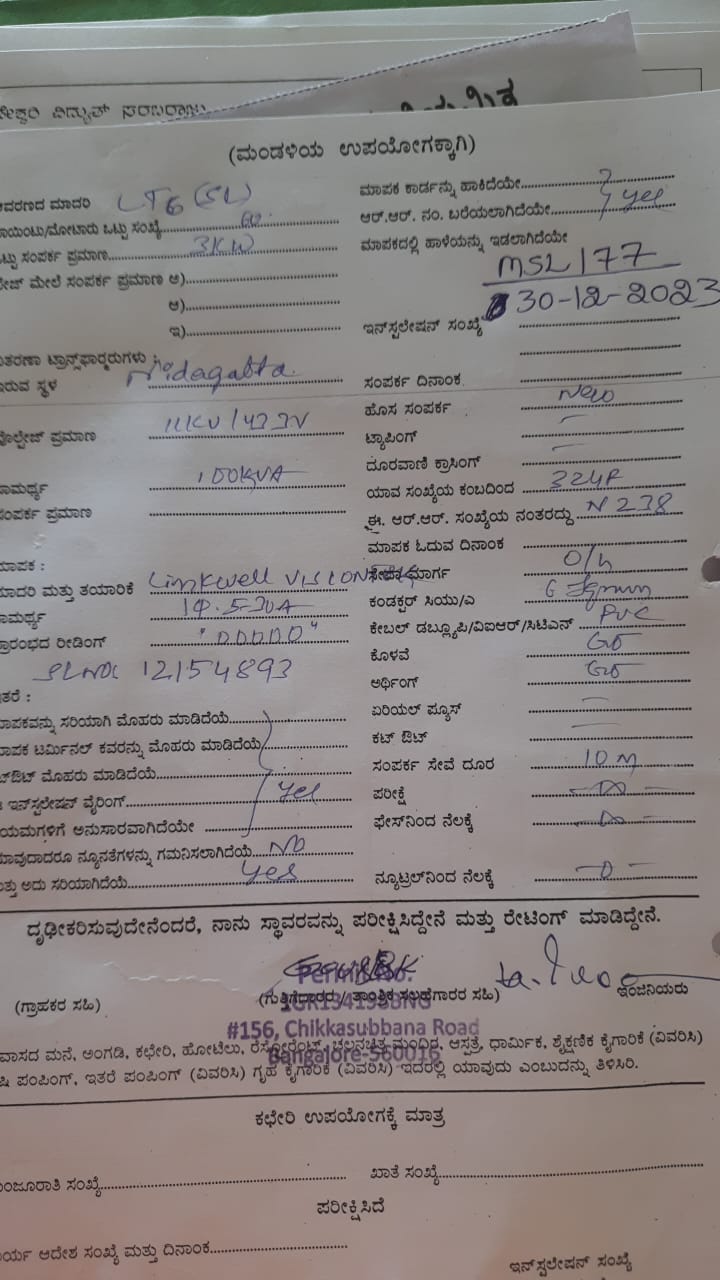 ವಿದ್ಯುತ್ ಸರಬರಾಜು
(ಮಂಡಳಿಯ ಉಪಯೋಗಕ್ಕಾಗಿ)
ಆವರಣದ ಮಾದರಿ LT6 (SL)
ಮಾಪಕ ಕಾರ್ಡನ್ನು ಹಾಕಿದೆಯೇ
ಪಾಯಿಂಟು/ಮೋಟಾರು ಒಟ್ಟು ಸಂಖ್ಯೆ
ಆರ್.ಆರ್. ನಂ. ಬರೆಯಲಾಗಿದೆಯೇ yes
ಒಟ್ಟು ಸಂಪರ್ಕ ಪ್ರಮಾಣ 3KW
ಮಾಪಕದಲ್ಲಿ ಹಾಳೆಯನ್ನು ಇಡಲಾಗಿದೆಯೇ
ಫೇಜ್ ಮೇಲೆ ಸಂಪರ್ಕ ಪ್ರಮಾಣ ಅ)
MSL177
ಆ)
30-12-2023
ಇ)
ಇನ್‌ಸ್ಟಲೇಷನ್ ಸಂಖ್ಯೆ
ವಿತರಣಾ ಟ್ರಾನ್ಸ್‌ಫಾರ್ಮರುಗಳು
ಇರುವ ಸ್ಥಳ Nidagatta
ಸಂಪರ್ಕ ದಿನಾಂಕ
ಹೊಸ ಸಂಪರ್ಕ New
ವೋಲ್ಟೇಜ್ ಪ್ರಮಾಣ 11KV/433V
ಟ್ಯಾಪಿಂಗ್ —
ದೂರವಾಣಿ ಕ್ರಾಸಿಂಗ್ —
ಸಾಮರ್ಥ್ಯ 100KVA
ಯಾವ ಸಂಖ್ಯೆಯ ಕಂಬದಿಂದ
ಸಂಪರ್ಕ ಪ್ರಮಾಣ
ಈ. ಆರ್.ಆರ್. ಸಂಖ್ಯೆಯ ನಂತರದ್ದು N 238
ಮಾಪಕ ಓದುವ ದಿನಾಂಕ
ಮಾಪಕ :
ಸೇವಾ ಮಾರ್ಗ O/h
ಮಾದರಿ ಮತ್ತು ತಯಾರಿಕೆ Linkwell VISION
ಕಂಡಕ್ಟರ್ ಸಿಯು/ಎ
ಸಾಮರ್ಥ್ಯ 1Φ.5-30A
ಕೇಬಲ್ ಡಬ್ಲ್ಯೂಪಿ/ವಿಐಆರ್/ಸಿಟಿಎಸ್ PVC
ಪ್ರಾರಂಭದ ರೀಡಿಂಗ್ "00000"
ಕೊಳವೆ
SLNO: 12154893
ಅರ್ಥಿಂಗ್
ಇತರೆ :
ಏರಿಯಲ್ ಫ್ಯೂಸ್ —
ಮಾಪಕವನ್ನು ಸರಿಯಾಗಿ ಮೊಹರು ಮಾಡಿದೆಯೆ
ಕಟ್ ಔಟ್ —
ಮಾಪಕ ಟರ್ಮಿನಲ್ ಕವರನ್ನು ಮೊಹರು ಮಾಡಿದೆಯೆ
ಸಂಪರ್ಕ ಸೇವೆ ದೂರ 10 m
ಕಟ್‌ಔಟ್ ಮೊಹರು ಮಾಡಿದೆಯೆ
ಪರೀಕ್ಷೆ
ಈ ಇನ್‌ಸ್ಟಲೇಷನ್ ವೈರಿಂಗ್ yes
ಫೇಸ್‌ನಿಂದ ನೆಲಕ್ಕೆ
ನಿಯಮಗಳಿಗೆ ಅನುಸಾರವಾಗಿದೆಯೇ
ಯಾವುದಾದರೂ ನ್ಯೂನತೆಗಳನ್ನು ಗಮನಿಸಲಾಗಿದೆಯೆ No
ಮತ್ತು ಅದು ಸರಿಯಾಗಿದೆಯೆ yes
ನ್ಯೂಟ್ರಲ್‌ನಿಂದ ನೆಲಕ್ಕೆ — 0 —
ದೃಢೀಕರಿಸುವುದೇನೆಂದರೆ, ನಾನು ಸ್ಥಾವರವನ್ನು ಪರೀಕ್ಷಿಸಿದ್ದೇನೆ ಮತ್ತು ರೇಟಿಂಗ್ ಮಾಡಿದ್ದೇನೆ.
(ಗ್ರಾಹಕರ ಸಹಿ)
(ಗುತ್ತಿಗೆದಾರರ / ತಾಂತ್ರಿಕ ಸಲಹೆಗಾರರ ಸಹಿ)
ಇಂಜಿನಿಯರು
Permit No.
#156, Chikkasubbana Road
Bangalore-560016
ವಾಸದ ಮನೆ, ಅಂಗಡಿ, ಕಛೇರಿ, ಹೋಟೆಲು, ರೆಸ್ಟೋರೆಂಟ್, ಚಲನಚಿತ್ರ ಮಂದಿರ, ಆಸ್ಪತ್ರೆ, ಧಾರ್ಮಿಕ, ಶೈಕ್ಷಣಿಕ ಕೈಗಾರಿಕೆ (ವಿವರಿಸಿ)
ಪಂಪಿಂಗ್, ಇತರೆ ಪಂಪಿಂಗ್ (ವಿವರಿಸಿ) ಗೃಹ ಕೈಗಾರಿಕೆ (ವಿವರಿಸಿ) ಇದರಲ್ಲಿ ಯಾವುದು ಎಂಬುದನ್ನು ತಿಳಿಸಿರಿ.
ಕಛೇರಿ ಉಪಯೋಗಕ್ಕೆ ಮಾತ್ರ
ಮಂಜೂರಾತಿ ಸಂಖ್ಯೆ
ಖಾತೆ ಸಂಖ್ಯೆ
ಪರೀಕ್ಷಿಸಿದೆ
ಕಾರ್ಯ ಆದೇಶ ಸಂಖ್ಯೆ ಮತ್ತು ದಿನಾಂಕ
ಇನ್‌ಸ್ಟಲೇಷನ್ ಸಂಖ್ಯೆ